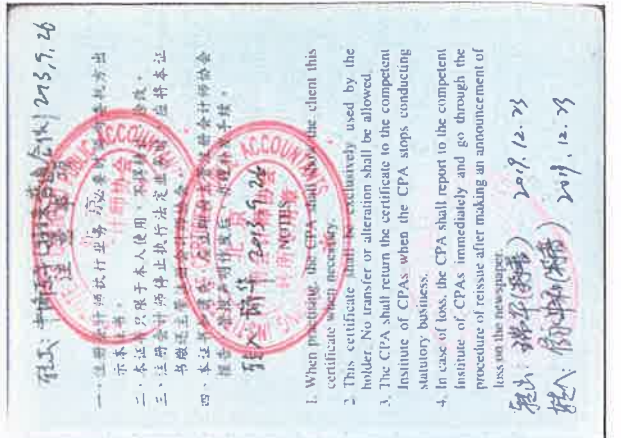 转出: 2015.9.26
注意事项
一、注册会计师执行业务,必要时须向委托方出
示本证书。
二、本证书只限于本人使用,不得转让、涂改。
三、注册会计师停止执行法定业务时,应将本证
书缴还主管注册会计师协会。
四、本证书如遗失,应立即向主管注册会计师协会
报告,登报声明作废后,办理补发手续。
转入 2015.9.26
NOTES
1. When practising, the CPA shall show the client this
certificate when necessary.
2. This certificate shall be exclusively used by the
holder. No transfer or alteration shall be allowed.
3. The CPA shall return the certificate to the competent
Institute of CPAs when the CPA stops conducting
statutory business.
4. In case of loss, the CPA shall report to the competent
Institute of CPAs immediately and go through the
procedure of reissue after making an announcement of
loss on the newspaper.
转出: 瑞华(特普) 2019.12.23
转入: (特普) 2019.12.23
ACCOUNTANTS
ACCOUNTANTS